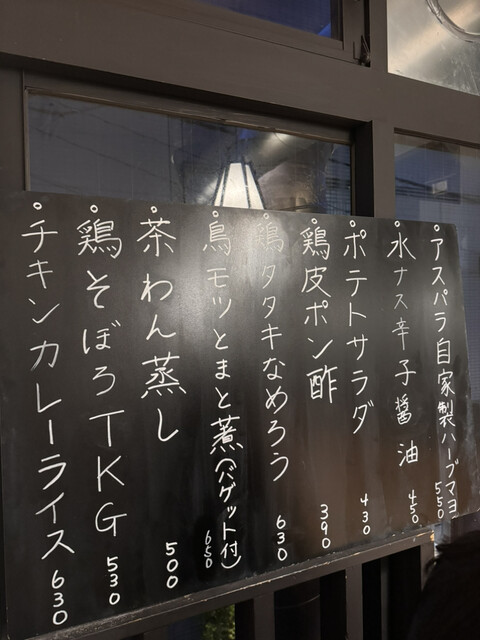 °アスパラ自家製ハーブマヨ 550
°水ナス辛子醤油 450
°ポテトサラダ 430
°鶏皮ポン酢 390
°鶏タタキなめろう 630
°鳥モツとまと煮(バゲット付) 650
°茶わん蒸し 500
°鶏そぼろTKG 530
°チキンカレーライス 630